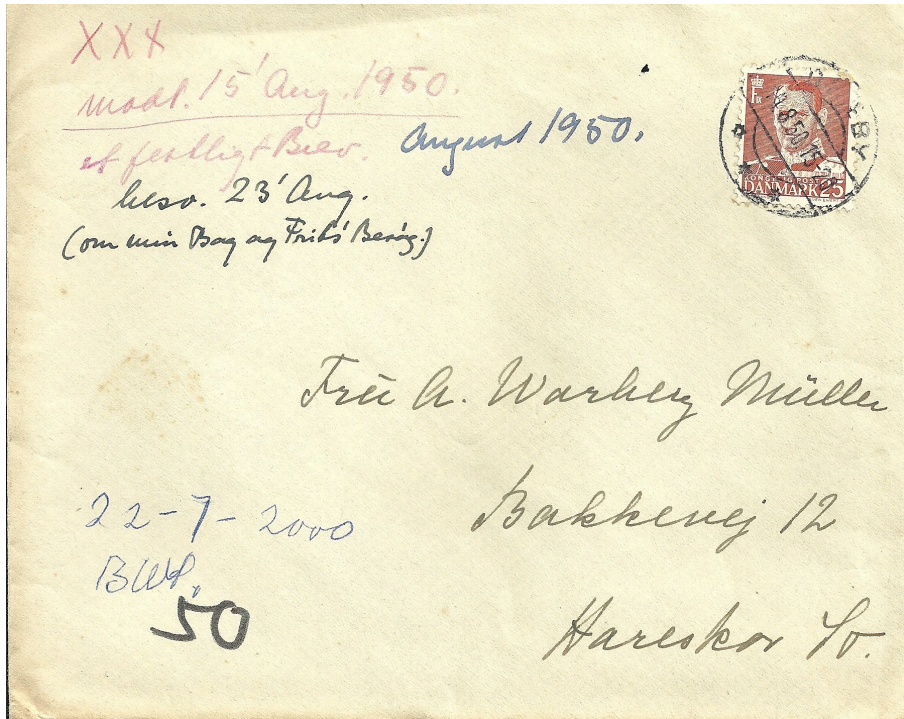 XXX
modt. 15' Aug. 1950.
et festligt Brev.
August 1950.
besv. 23' Aug.
(om min Bog og Frits' Besøg.)
DANMARK 25
Fru A. Warberg Müller
Bakkevej 12
Hareskov St.
22-7-2000
BWP.
50